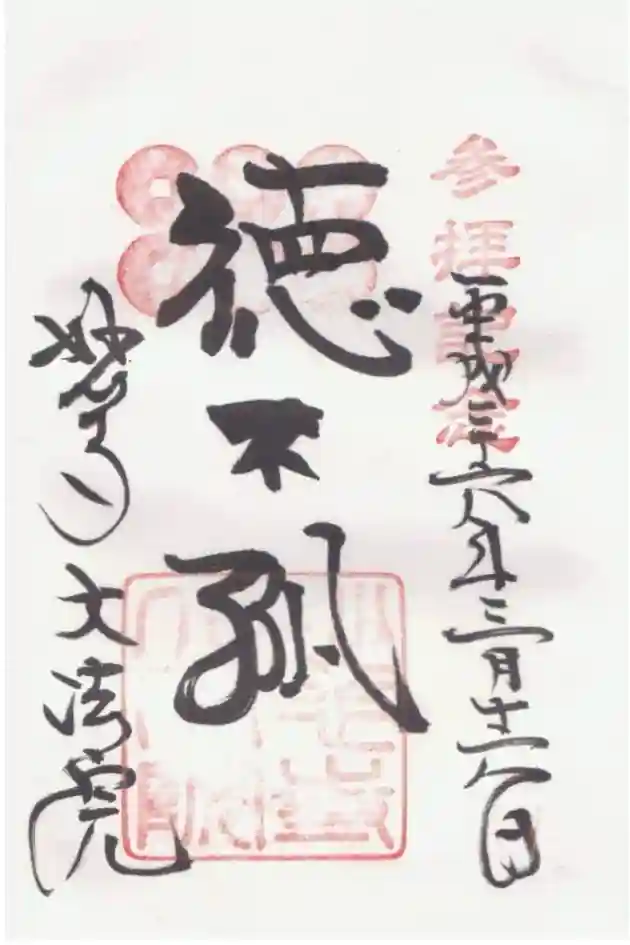 参拝記念
平成二十六年三月十六日
徳不孤
妙心寺 大法院